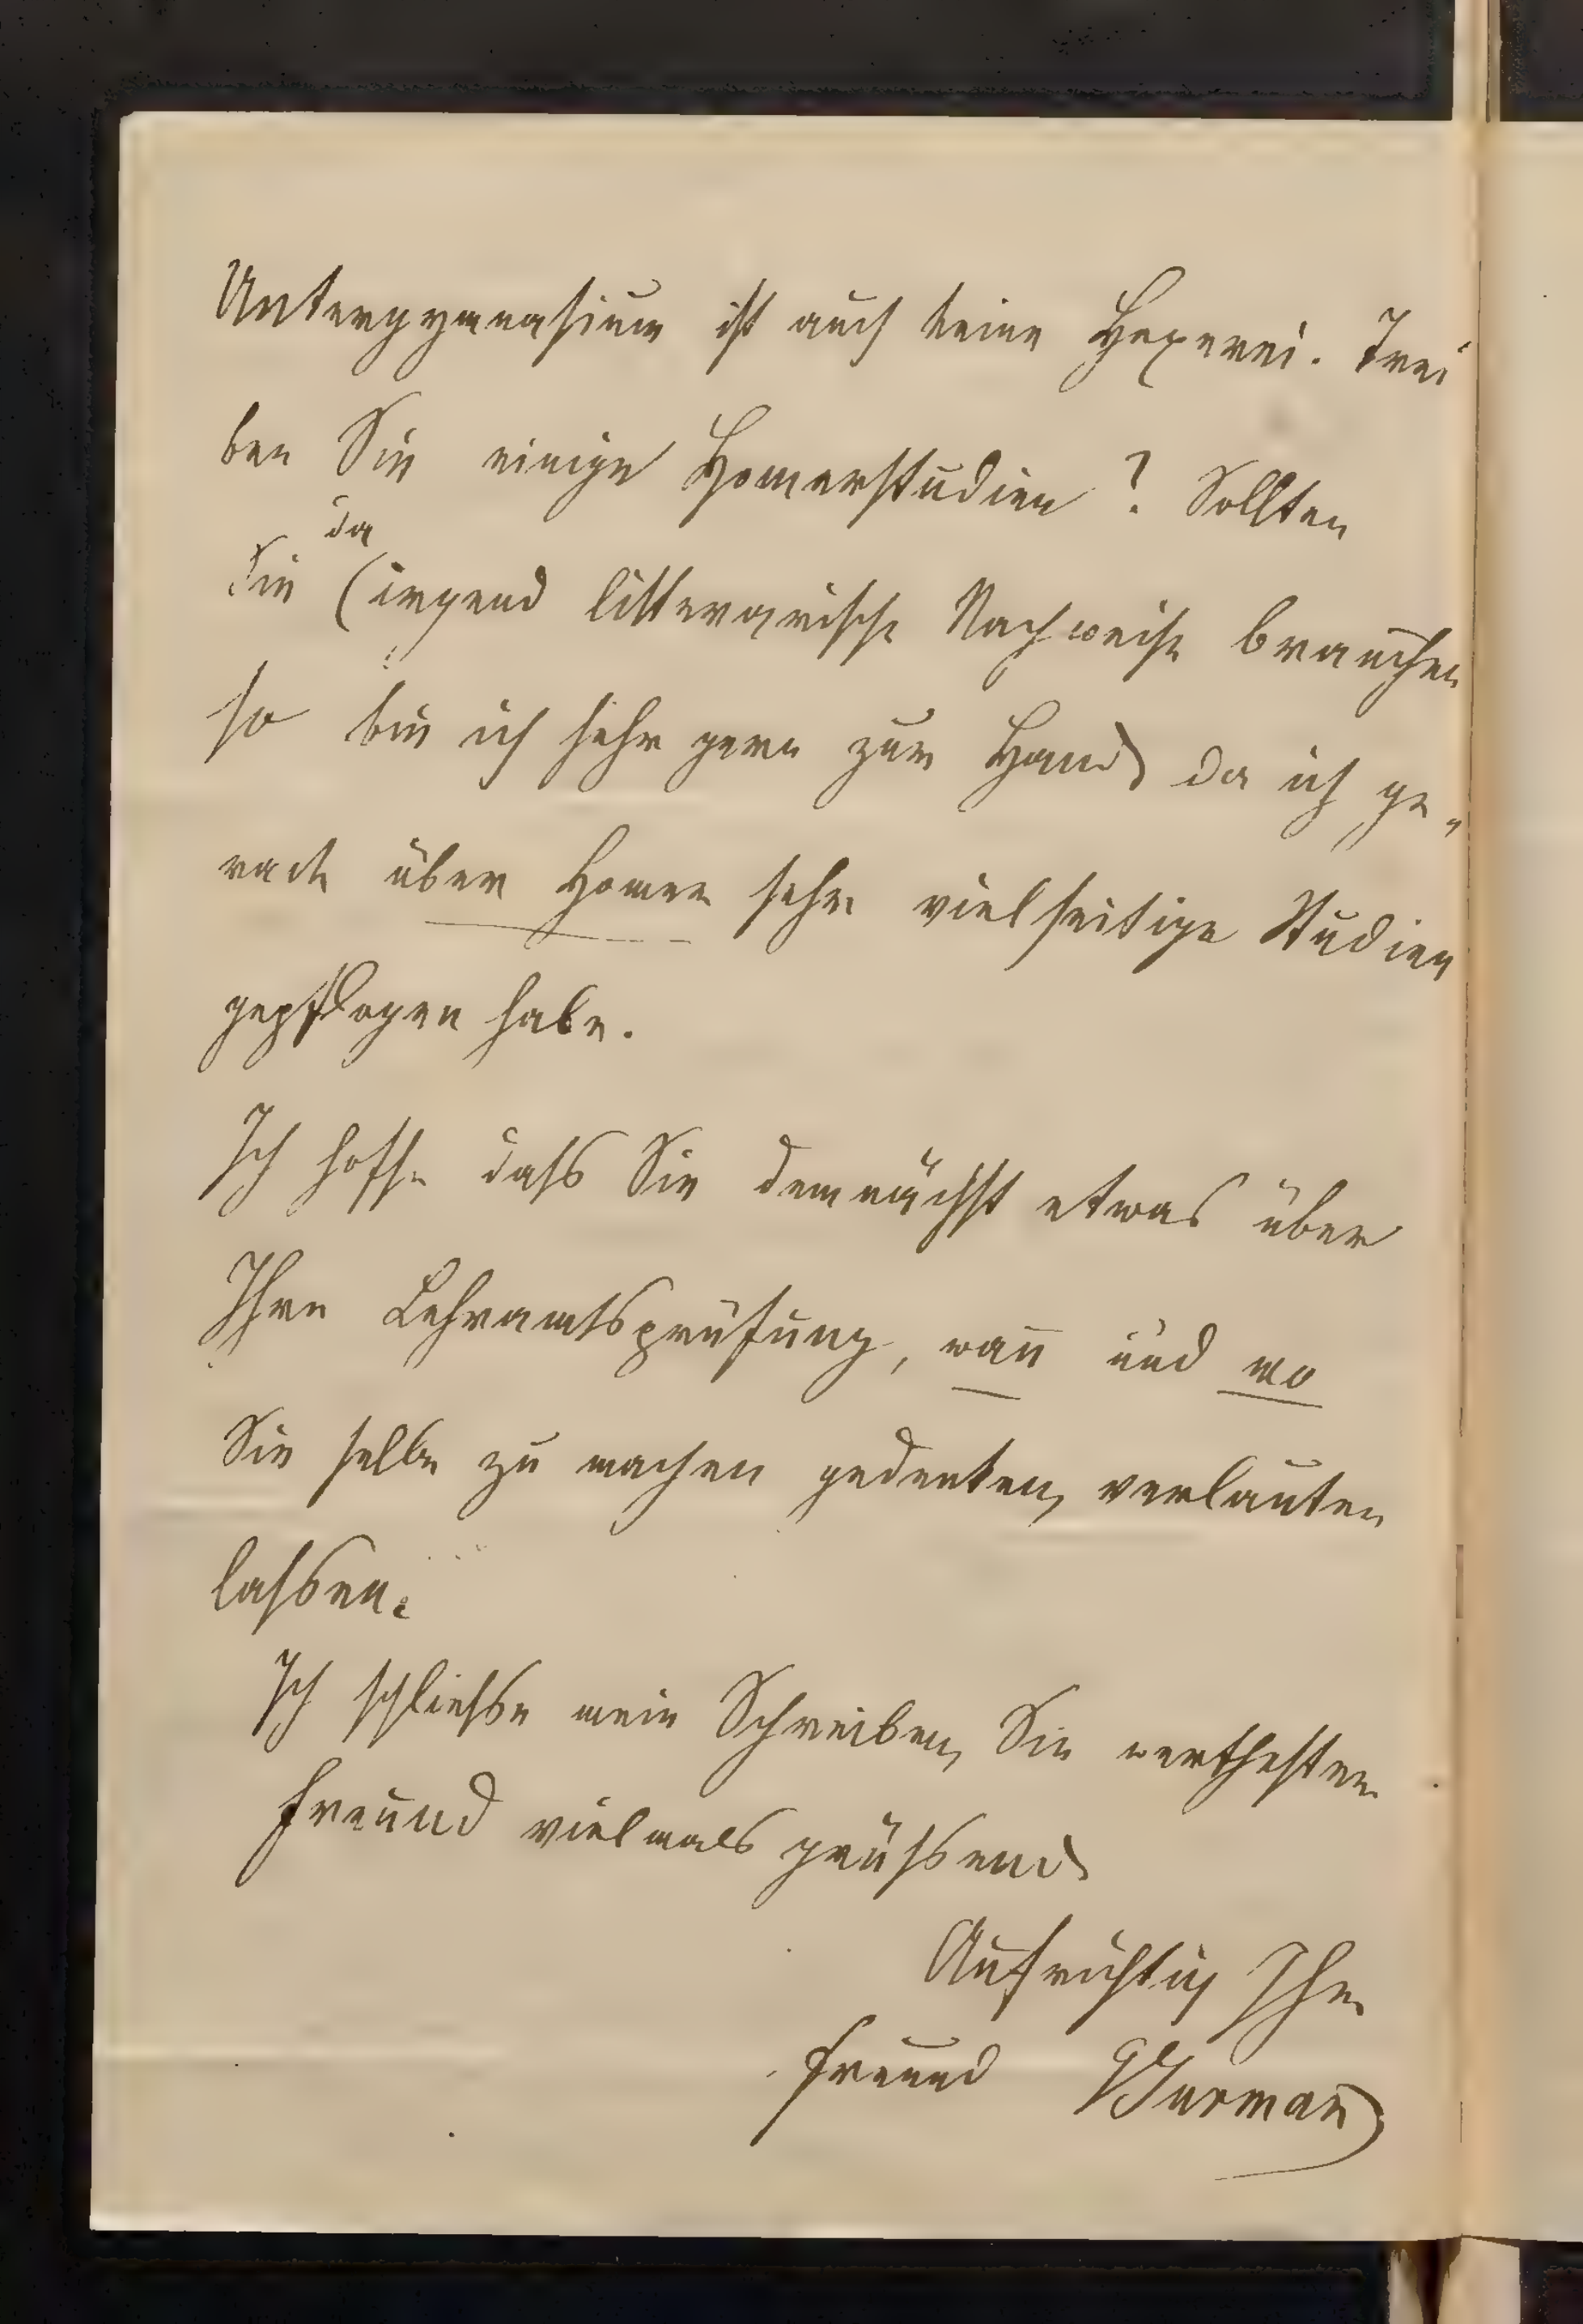 Untergymnasium ist auch keine Hexerei. Trei
ben Sie einige Homerstudien? Sollten
da
Sie (irgend litterarische Nachweise brauchen
so bin ich sehr gern zur Hand, da ich ge„
rade über Homer sehr vielseitige Studien
gepflogen habe.
Ich hoffe dass Sie demnächst etwas über
Ihre Lehramtsprüfung, wan̄ und wo
Sie selbe zu machen gedenken, verlauten
lassen.
Ich schliesse mein Schreiben, Sie werthester
Freund vielmals grüssend
Aufrichtig Ihr
Freund